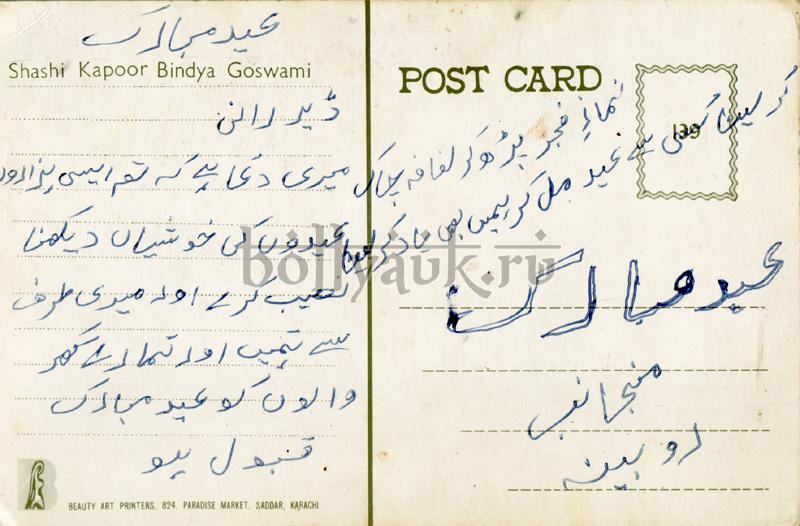 عید مبارک
Shashi Kapoor Bindya Goswami
ڈیر رانی
میری دُعا ہے کہ تم ایسی ہزاروں
عیدوں کی خوشیاں دیکھنا
نصیب کرے اور میری طرف
سے تمہیں اور تمہارے گھر
والوں کو عید مبارک
قبول ہو
BEAUTY ART PRINTERS, 824, PARADISE MARKET, SADDAR, KARACHI
POST CARD
139
نمازِ فجر پڑھ کر لفافہ چاک
کر لینا کسی سے عید مل کر ہمیں بھی یاد کر لینا
عید مبارک
منجانب
روبینہ
bollyauk.ru